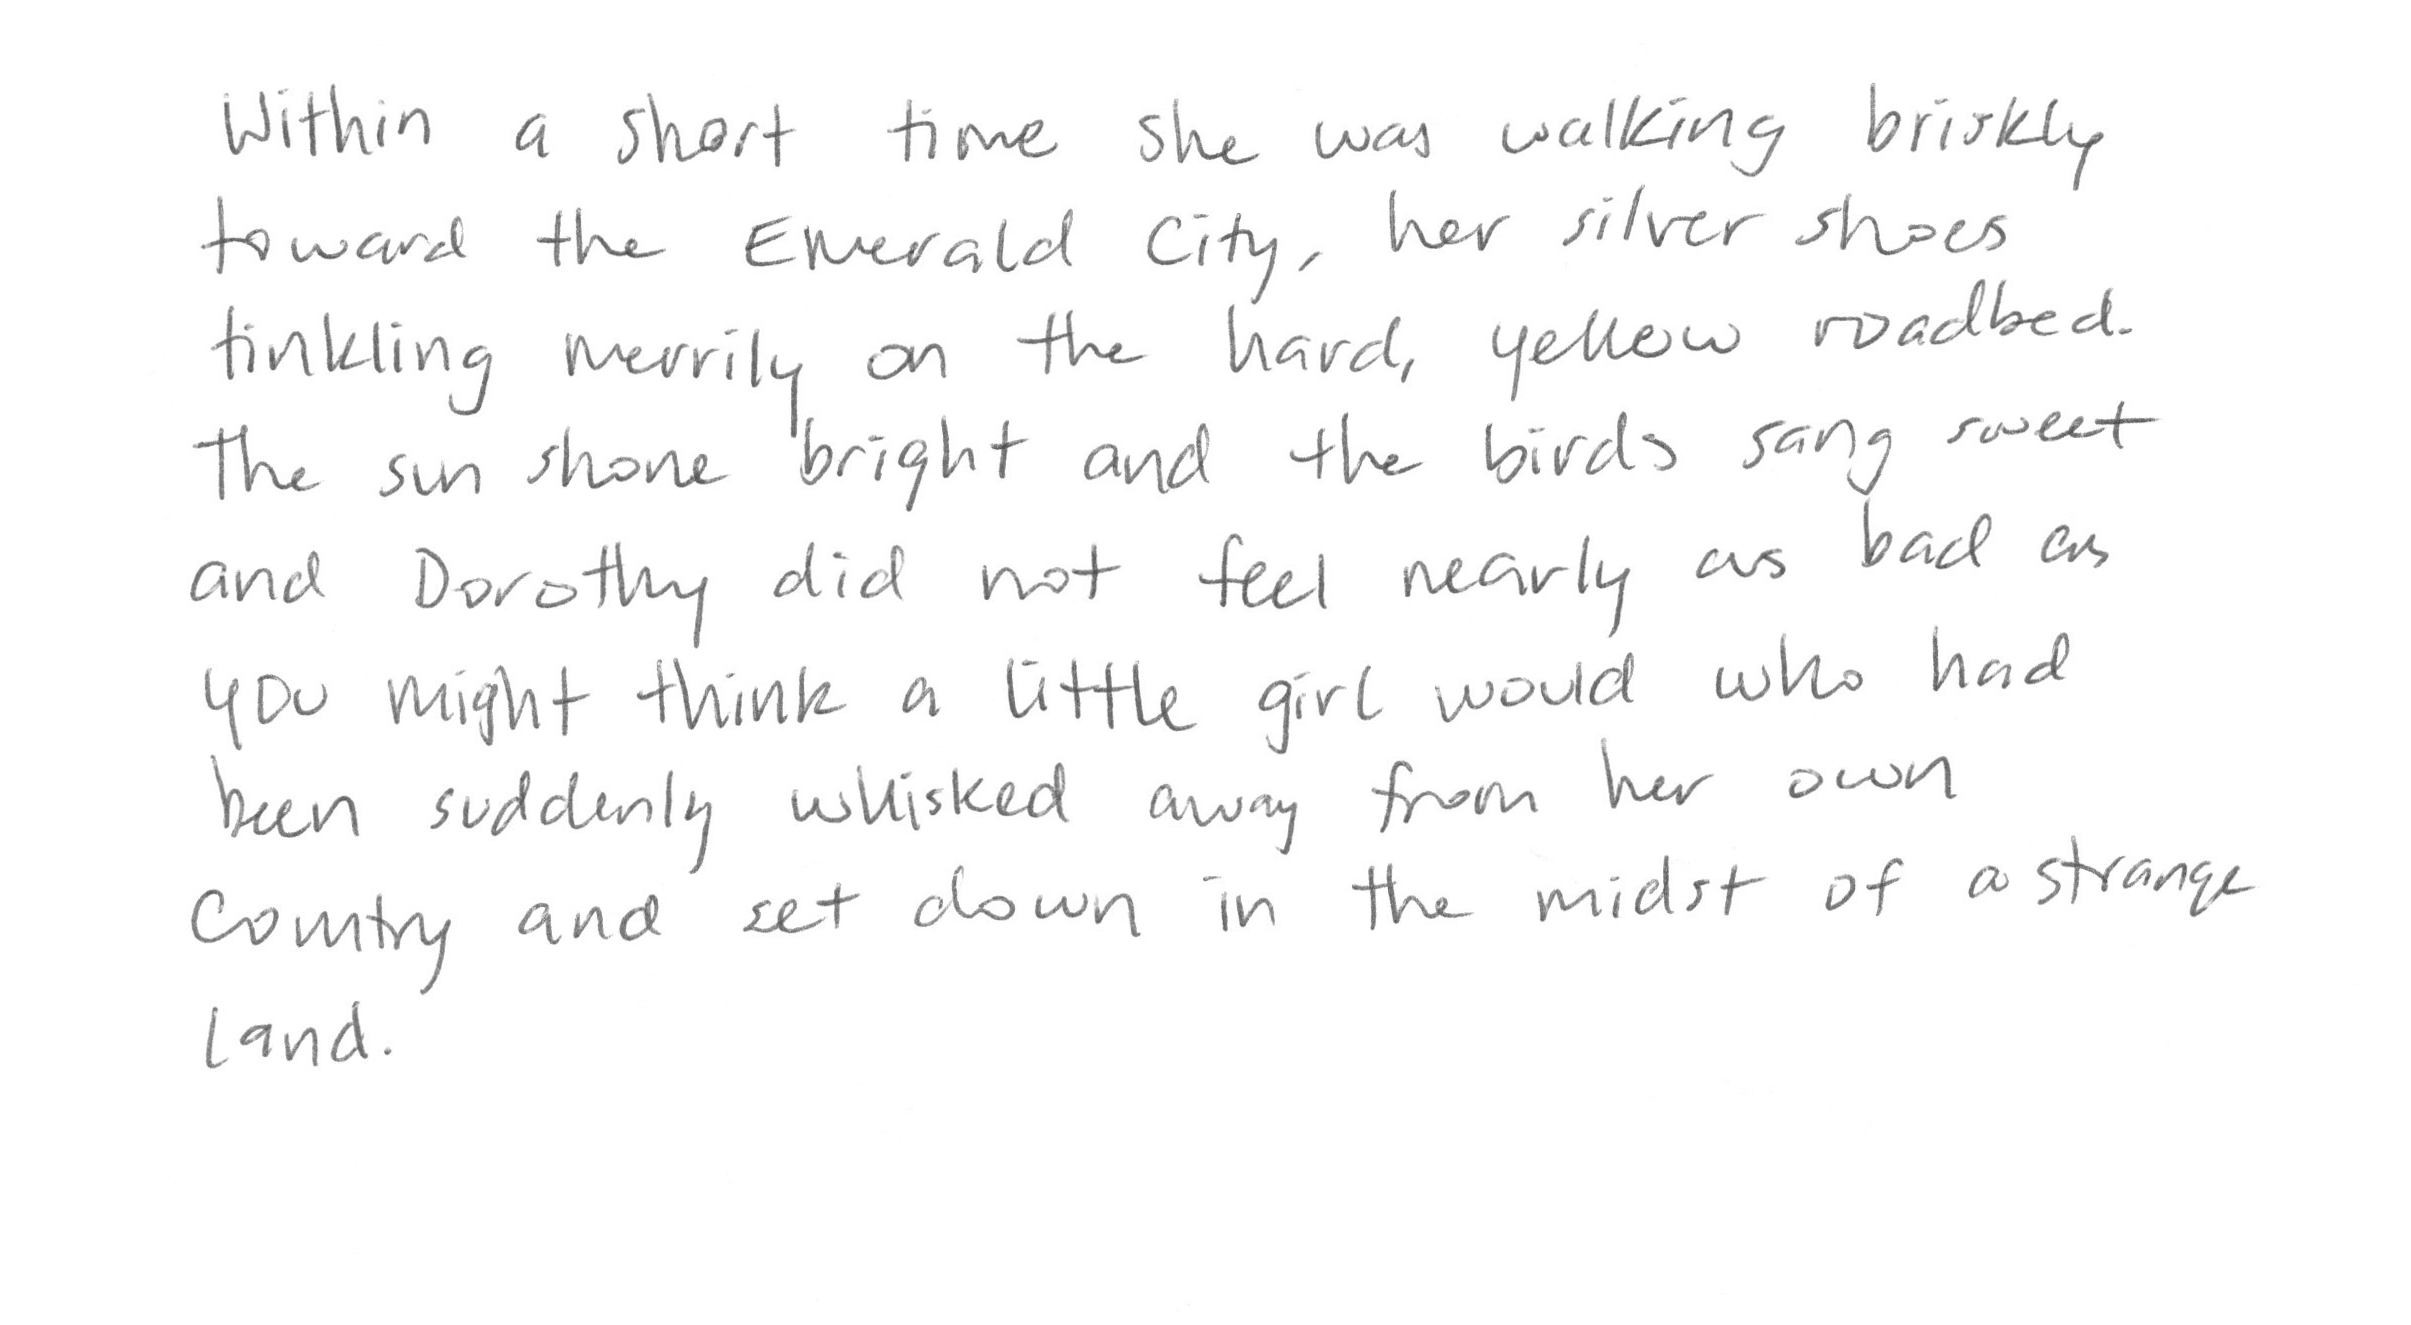 Within a short time she was walking briskly
toward the Emerald City, her silver shoes
tinkling merrily on the hard, yellow roadbed.
The sun shone bright and the birds sang sweet
and Dorothy did not feel nearly as bad as
you might think a little girl would who had
been suddenly whisked away from her own
Country and set down in the midst of a strange
land.